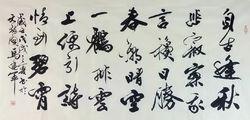 自古逢秋
悲寂寥我
言秋日勝
春朝晴空
一鶴排雲
上便引詩
情到碧霄